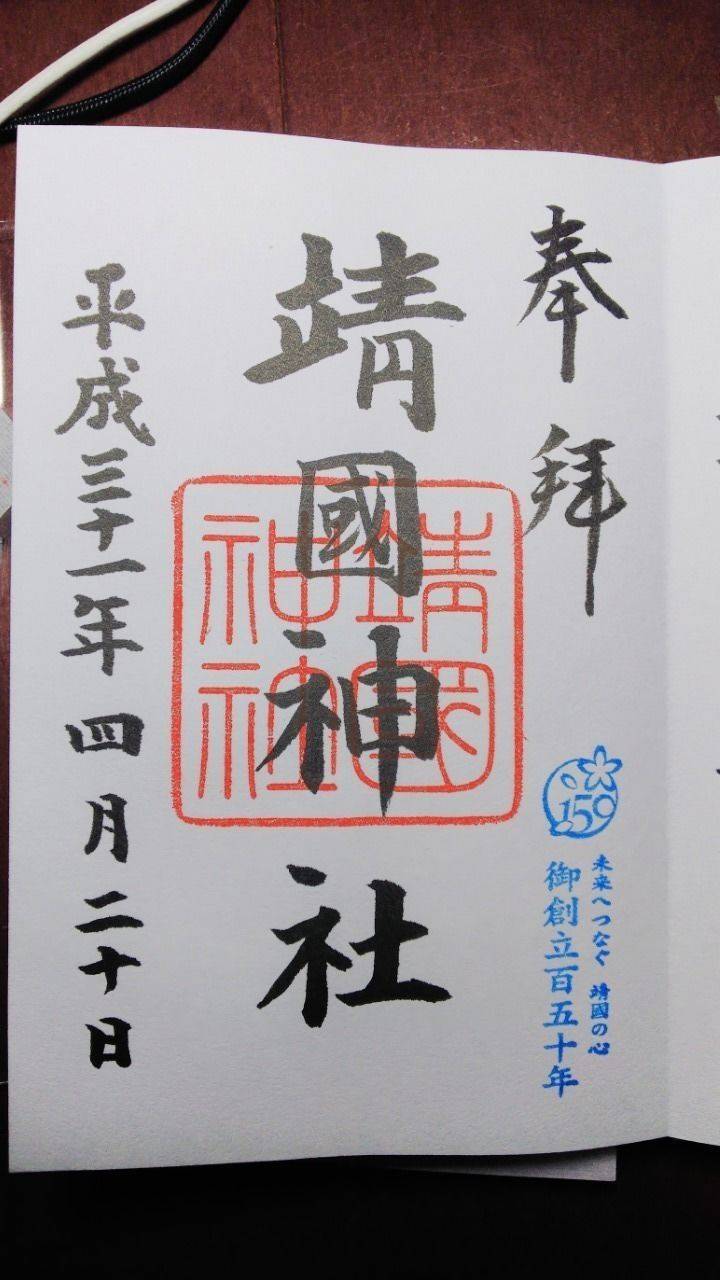 奉拜
未来へつなぐ 靖國の心
御創立百五十年
150
靖國神社
靖國神社
平成三十一年四月二十日